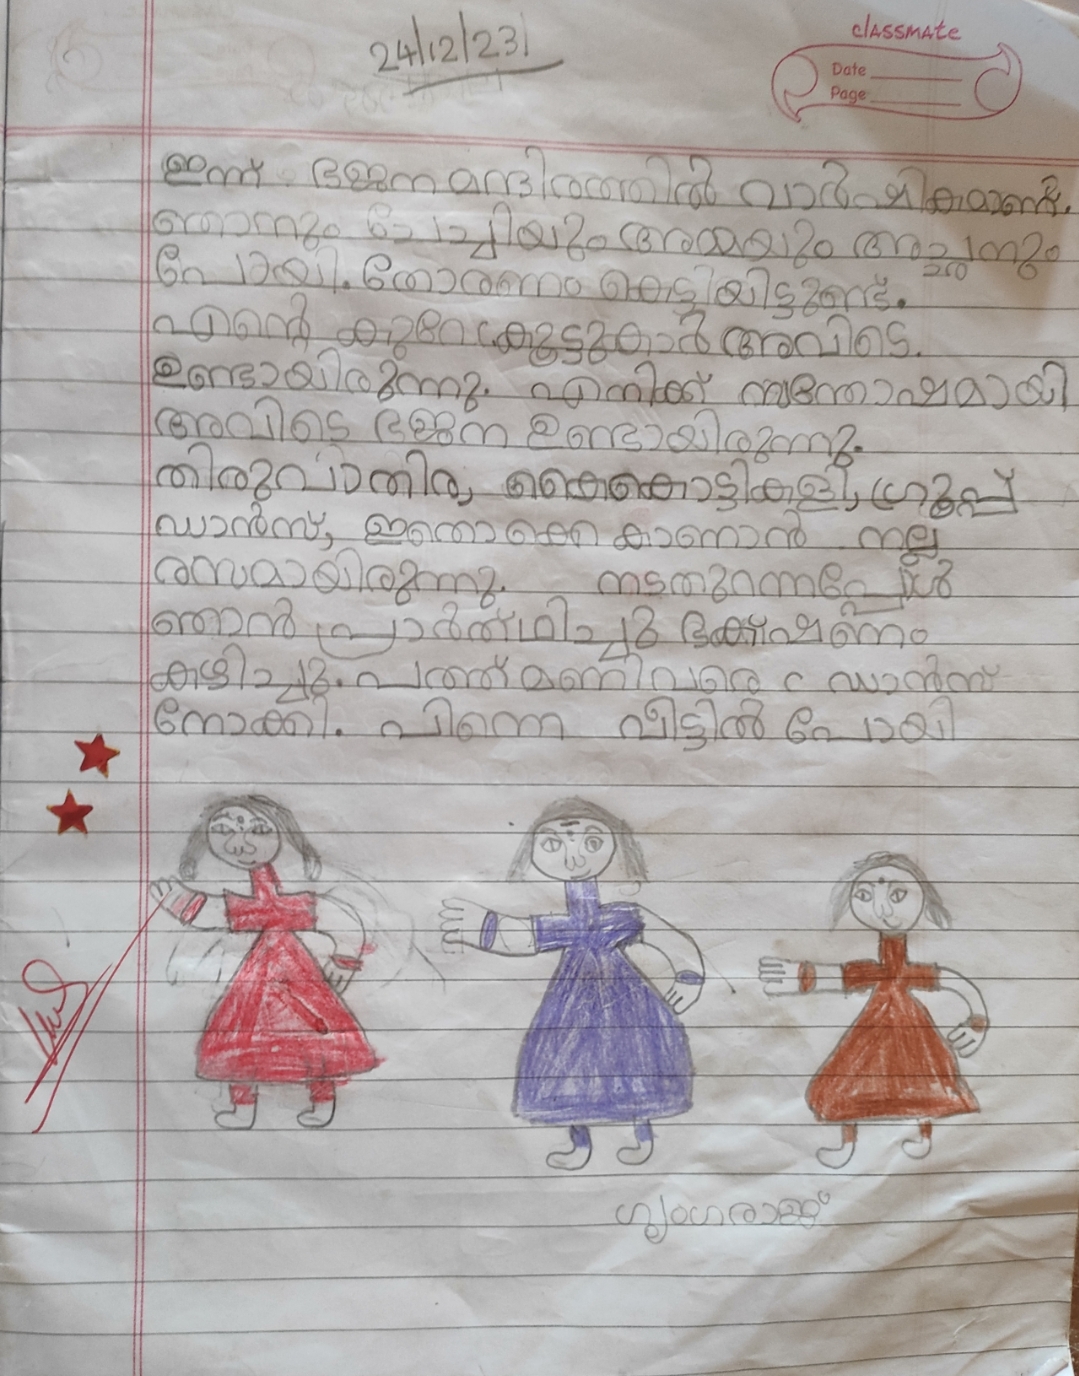 24/12/23
classmate
Date
Page
ഇന്ന് ഭജന മന്ദിരത്തിൽ വാർഷികമാണ്.
ഞാനും ചേച്ചിയും അമ്മയും അച്ഛനും
പോയി. തോരണം കെട്ടിയിട്ടുണ്ട്.
എന്റെ കുറേ കൂട്ടുകാർ അവിടെ.
ഉണ്ടായിരുന്നു. എനിക്ക് സന്തോഷമായി
അവിടെ ഭജന ഉണ്ടായിരുന്നു.
തിരുവാതിര, കൈകൊട്ടികളി, ഗ്രൂപ്പ്
ഡാൻസ്, ഇതൊക്കെ കാണാൻ നല്ല
രസമായിരുന്നു. നടതുറന്നപ്പോൾ
ഞാൻ പ്രാർത്ഥിച്ചു ഭക്ഷണം
കഴിച്ചു. പത്ത് മണിവരെ ഡാൻസ്
നോക്കി. പിന്നെ വീട്ടിൽ പോയി